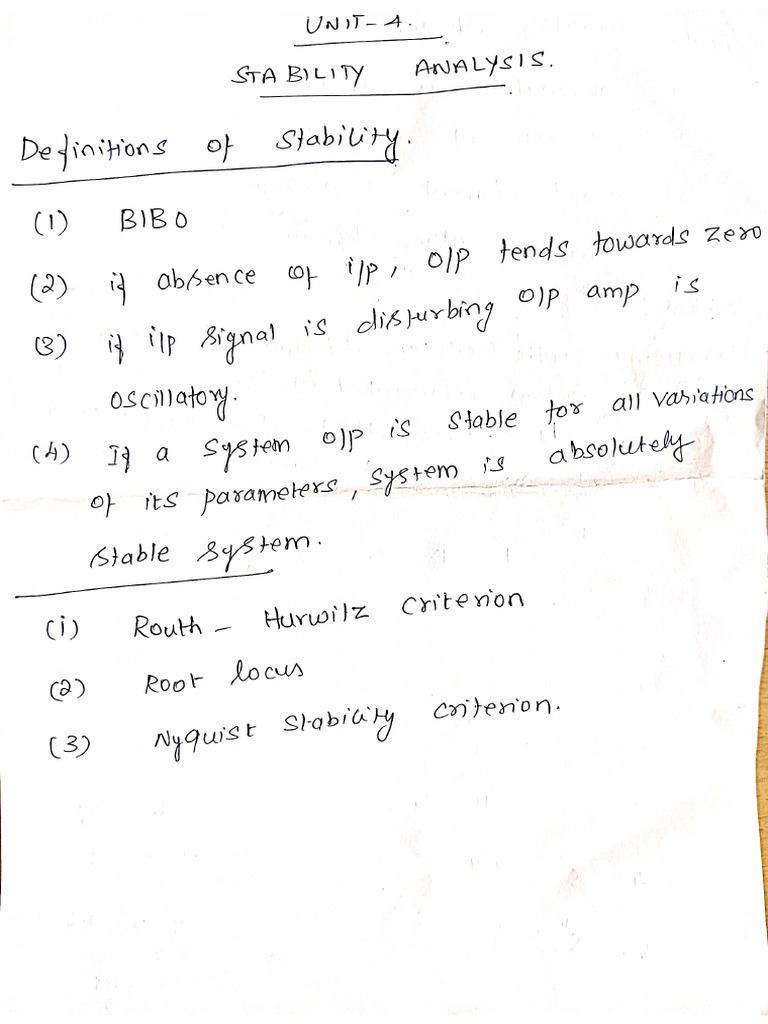 UNIT-4.
STABILITY ANALYSIS.
Definitions of Stability.
(1) BIBO
(2) if absence of i/p, o/p tends towards zero
(3) if i/p signal is disturbing o/p amp is
oscillatory.
(4) If a system o/p is stable for all variations
of its parameters, system is absolutely
stable system.
(i) Routh - Hurwilz criterion
(2) Root locus
(3) Nyquist stability criterion.